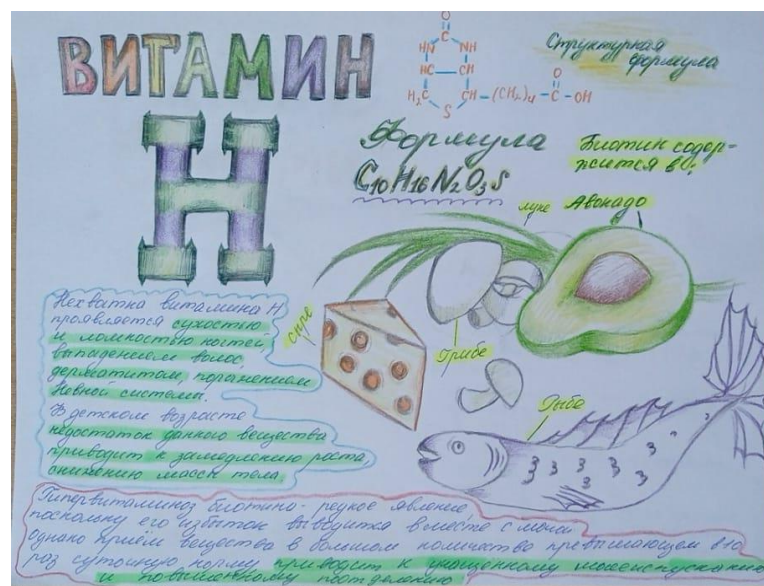 ВИТАМИН
H
O
C
HN NH
HC CH
H₂C CH-(CH₂)₄-C-OH
O
S
Структурная
формула
Формула
C₁₀H₁₆N₂O₃S
Биотин содер-
жится в:
луке Авокадо
сыре
Грибе
Рыбе
Нехватка витамина H
проявляется сухостью
и ломкостью ногтей,
выпадением волос,
дерматитом, поражением
Невной системы.
В детском возрасте
недостаток данного вещества
приводит к замедлению роста,
снижению массы тела.
Гипервитаминоз биотина - редкое явление,
поскольку его избыток выводится вместе с мочой
однако приём вещества в большом количестве превышающем в 10
раз суточную норму приводит к учащенному мочеиспусканию
и повышенному потделению!